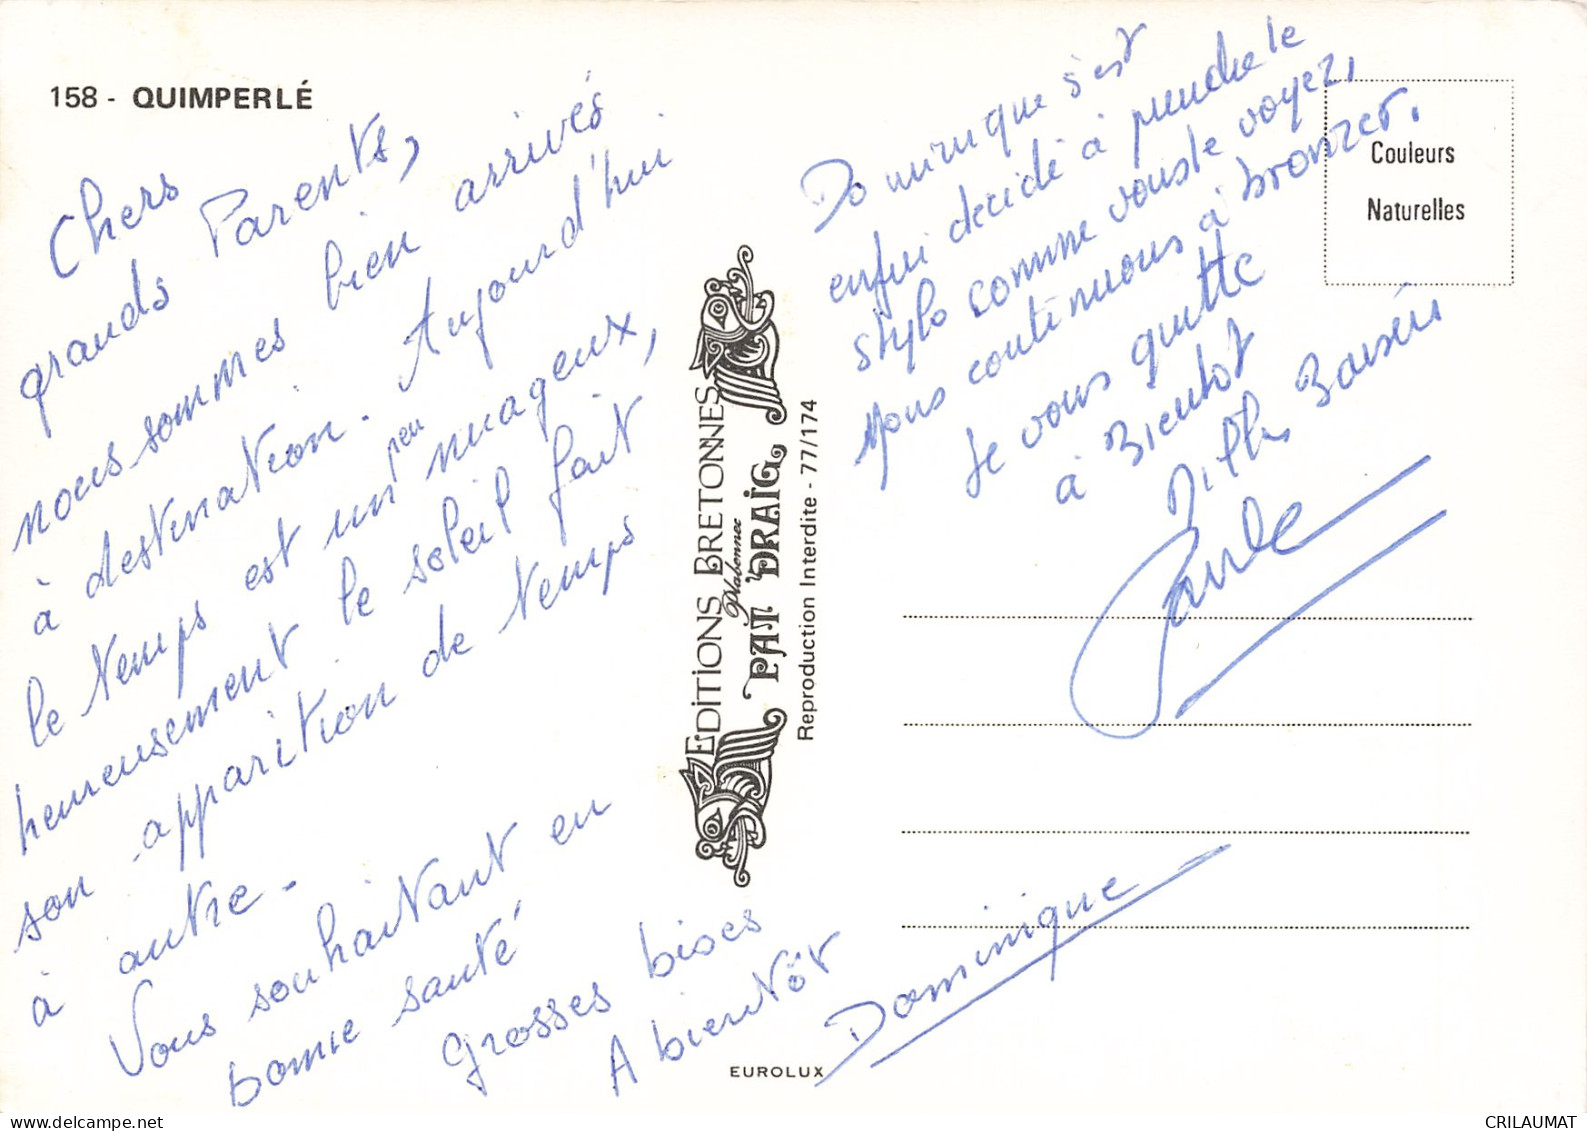 158 - QUIMPERLÉ
Chers
grands Parents,
nous sommes bien arrivés
à destination. Aujourd'hui
le temps est un peu nuageux,
heureusement le soleil fait
son apparition de temps
à autre.
Vous souhaitant en
bonne santé
Grosses bises
A bientôt
Dominique
Dominique s'est
enfin décidé à prendre le
stylo comme vous le voyez,
Nous continuons à bronzer.
Je vous quitte
à Bientot
Mille Baisers
Paule
Couleurs
Naturelles
EDITIONS BRETONNES
Plabennec
PAT DRAÏG
Reproduction Interdite - 77/174
EUROLUX
www.delcampe.net
CRILAUMAT